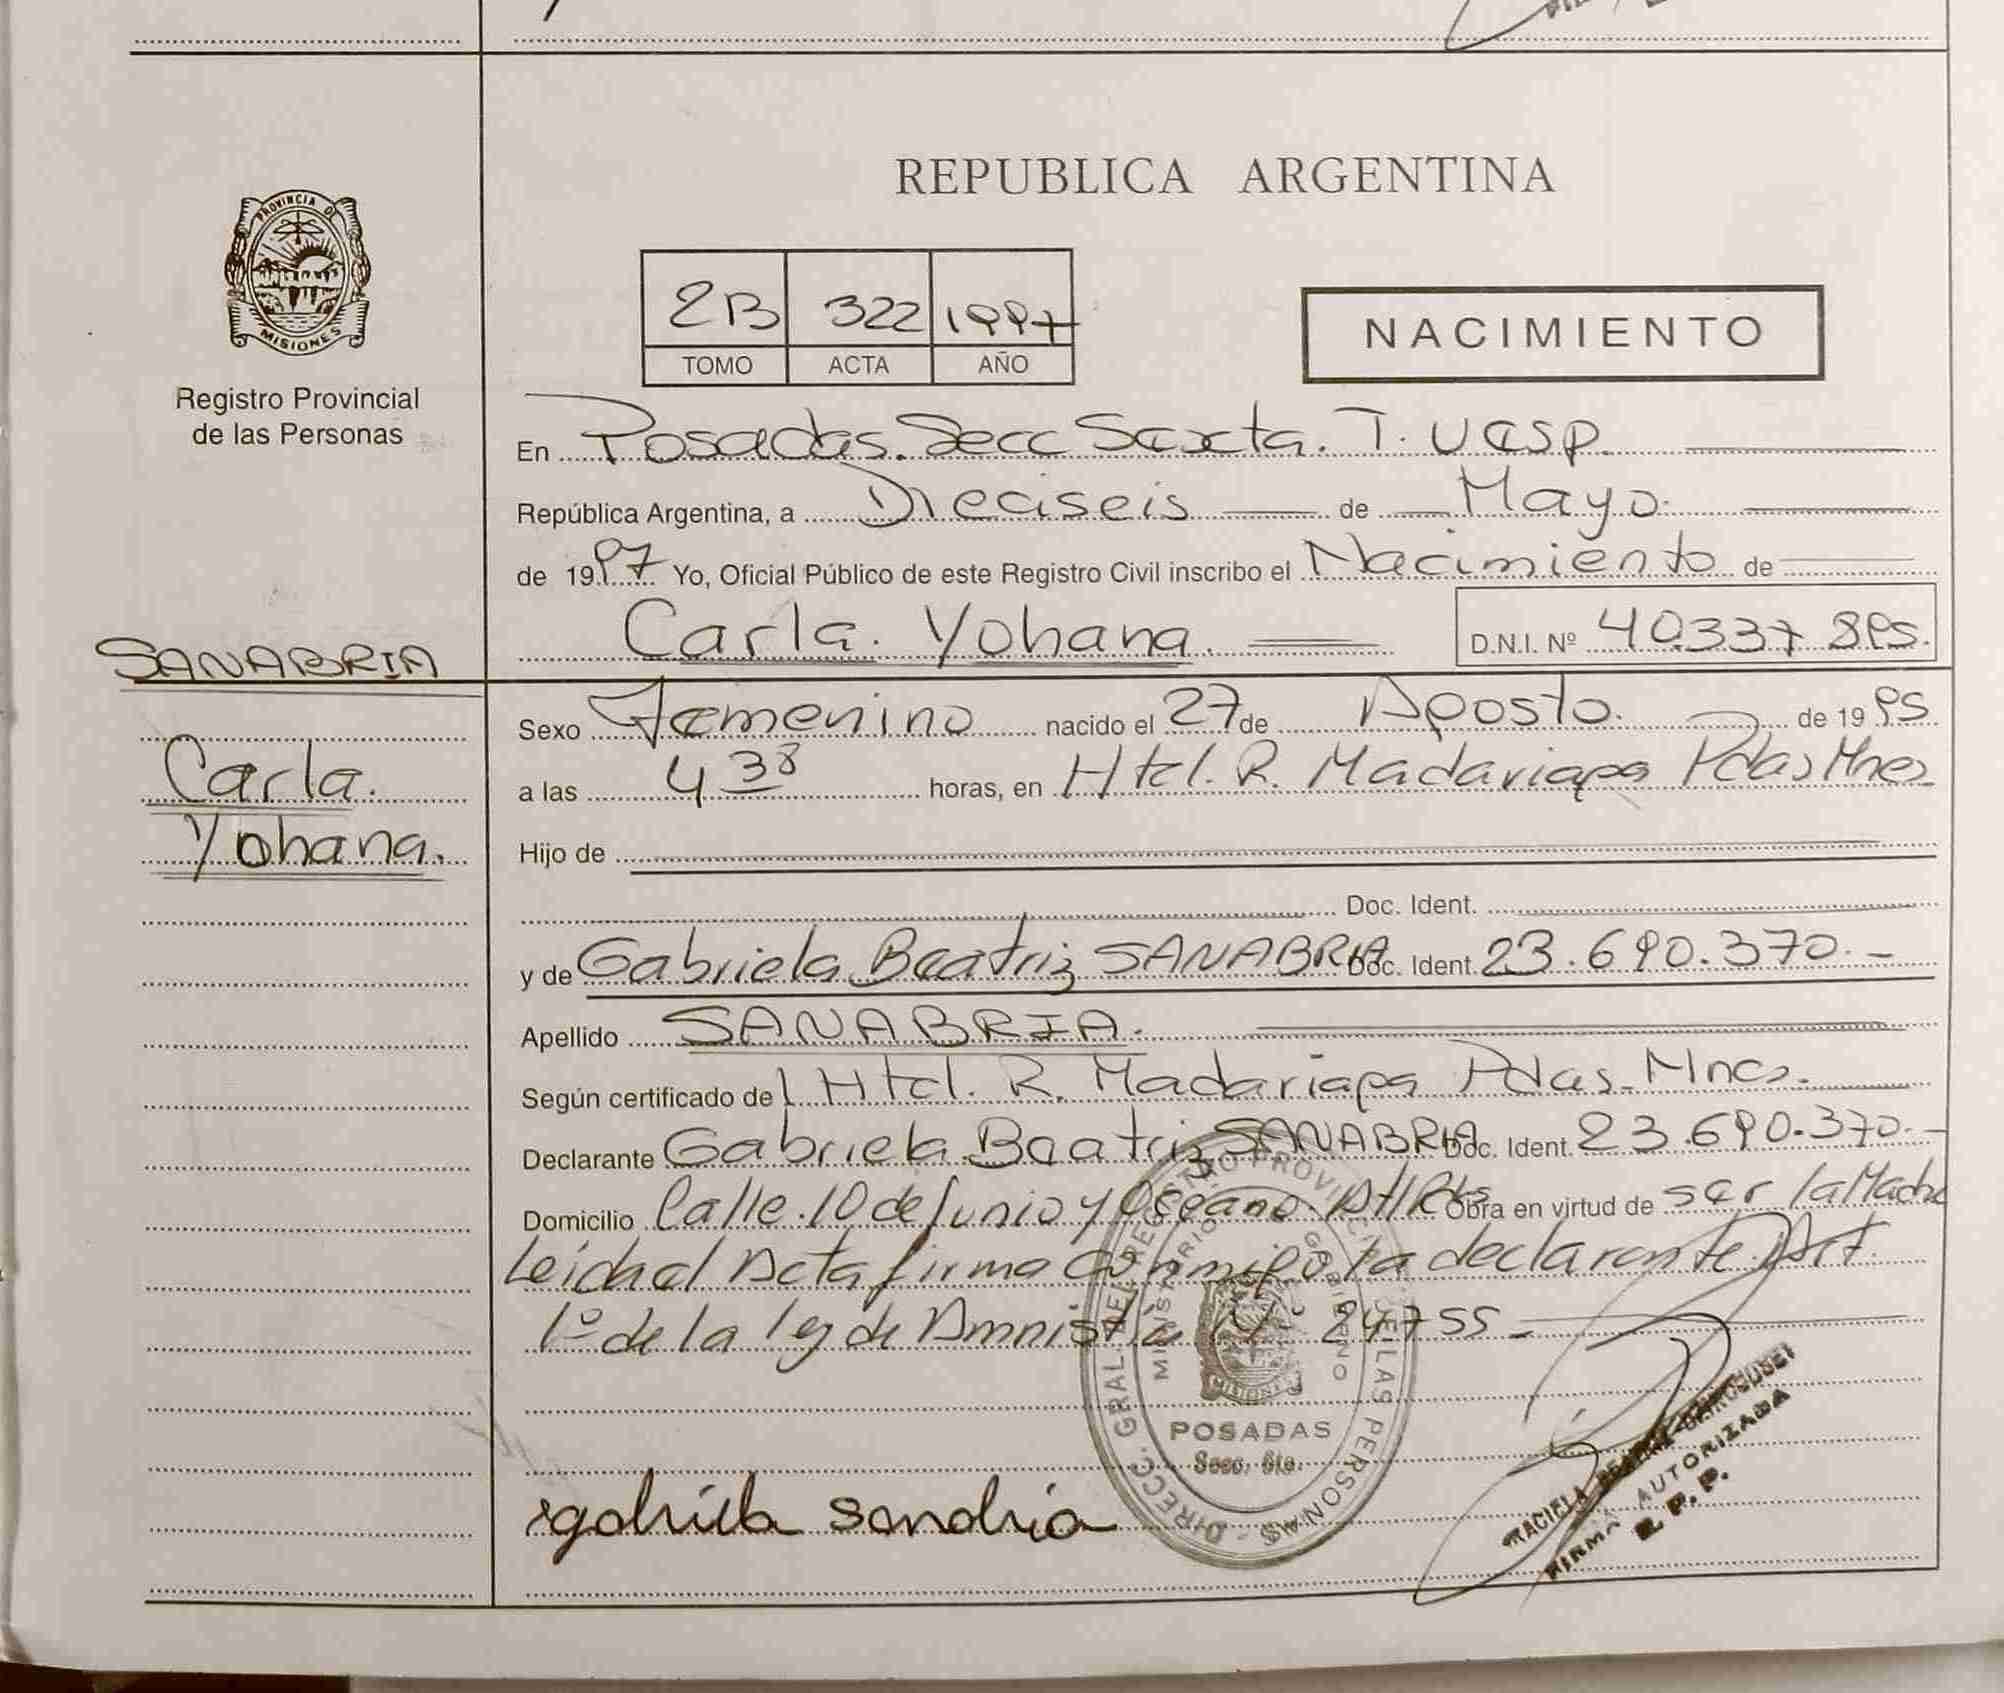 PROVINCIA DE
MISIONES
Registro Provincial
de las Personas
SANABRIA
Carla.
Yohana.
REPUBLICA ARGENTINA
2B 322 1997
TOMO ACTA AÑO
NACIMIENTO
En Posadas. Secc Sexta. T.
República Argentina, a Dieciseis de Mayo.
de 1997 Yo, Oficial Público de este Registro Civil inscribo el Nacimiento de
Carla. Yohana. D.N.I. Nº 40.337.895.
Sexo Femenino nacido el 27 de Agosto. de 1995
a las 4 38 horas, en Htal. R. Madariaga Pdas Mnes
Hijo de
Doc. Ident.
y de Gabriela Beatriz SANABRIA Doc. Ident. 23.690.370.-
Apellido SANABRIA.
Según certificado de l Htal. R. Madariaga Pdas. Mnes.
Declarante Gabriela Beatriz SANABRIA Doc. Ident. 23.690.370.-
Domicilio Calle. 10 de Junio y Oceano. Obra en virtud de ser la Madre
Leida el Acta firma conmigo la declarante. Art.
1º de la ley de Amnistia Nº 24.755-
DIRECC. GRAL. DEL REGISTRO PROVINCIAL DE LAS PERSONAS
MINISTERIO GOBIERNO
MISIONES
POSADAS
Secc. 6ta.
gabriela sanabria
GRACIELA BEATRIZ
FIRMA AUTORIZADA
R.P.P.